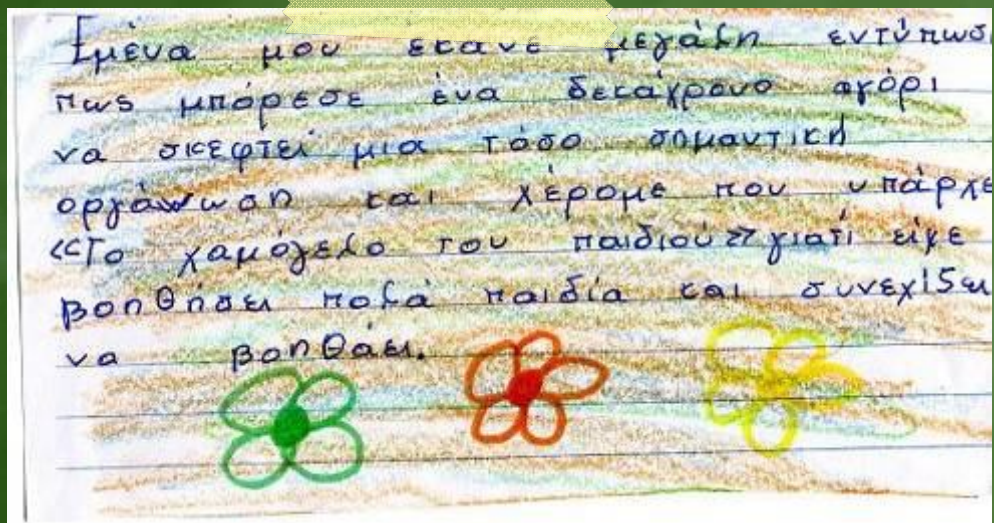 Εμένα μου έκανε μεγάλη εντύπωσ
πως μπόρεσε ένα δεκάχρονο αγόρι
να σκεφτεί μια τόσο σημαντική
οργάνωση και χέρομε που υπάρχε
«Το χαμόγελο του παιδιού» γιατί είχε
βοηθήσει πολά παιδία και συνεχίζει
να βοηθάει.